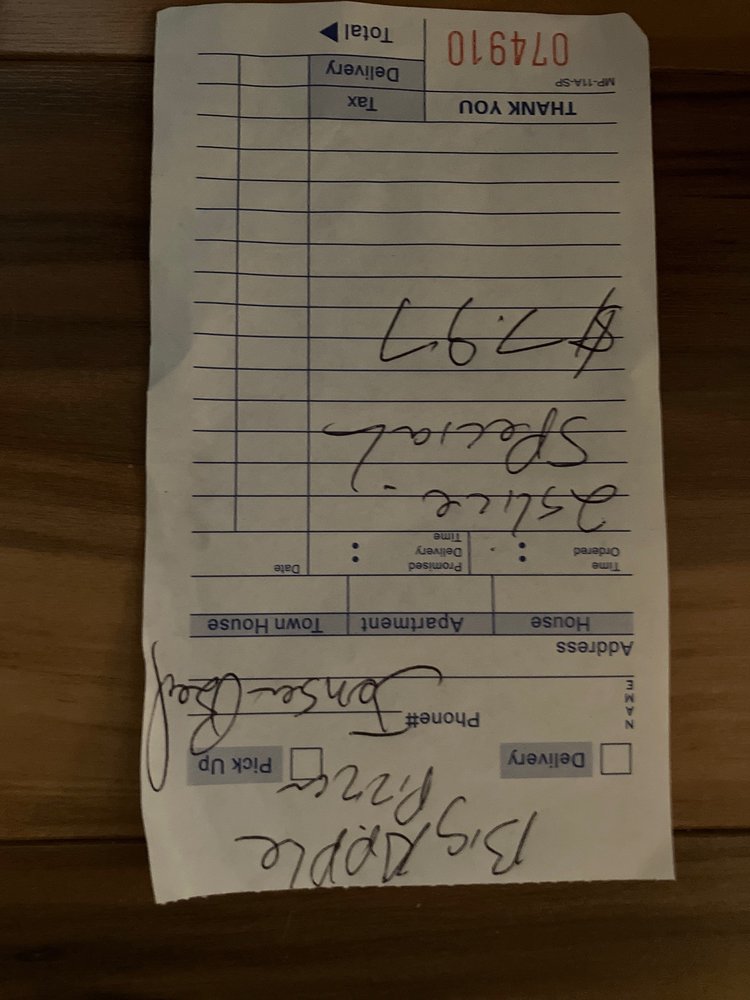 Big Apple
Pizza
Delivery Pick Up
NAME
Phone#
Jensen
Address
House Apartment Town House
Time Ordered : Promised Delivery Time : Date
2 Slice
Special
$7.97
THANK YOU Tax
MP-11A-SP Delivery
074910 Total